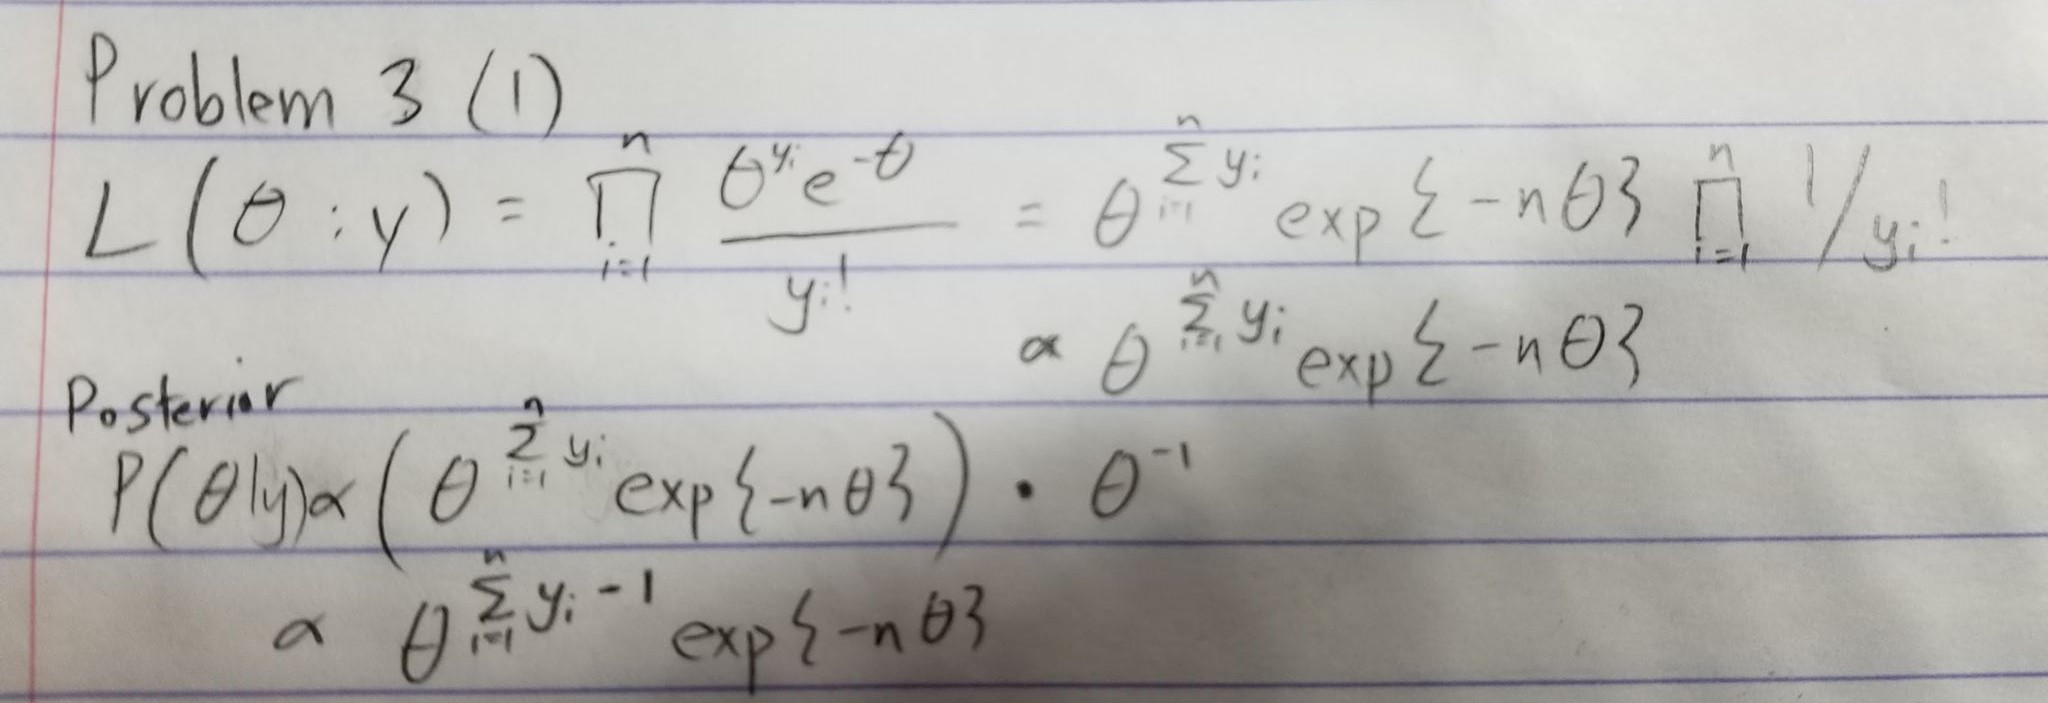 Problem 3 (1)
L(θ:y) = ∏_{i=1}^{n} \frac{θ^{y_i} e^{-θ}}{y_i!} = θ^{∑_{i=1}^{n} y_i} exp{-nθ} ∏_{i=1}^{n} 1/y_i!
∝ θ^{∑_{i=1}^{n} y_i} exp{-nθ}
Posterior
P(θ|y) ∝ (θ^{∑_{i=1}^{n} y_i} exp{-nθ}) · θ^{-1}
∝ θ^{∑_{i=1}^{n} y_i - 1} exp{-nθ}